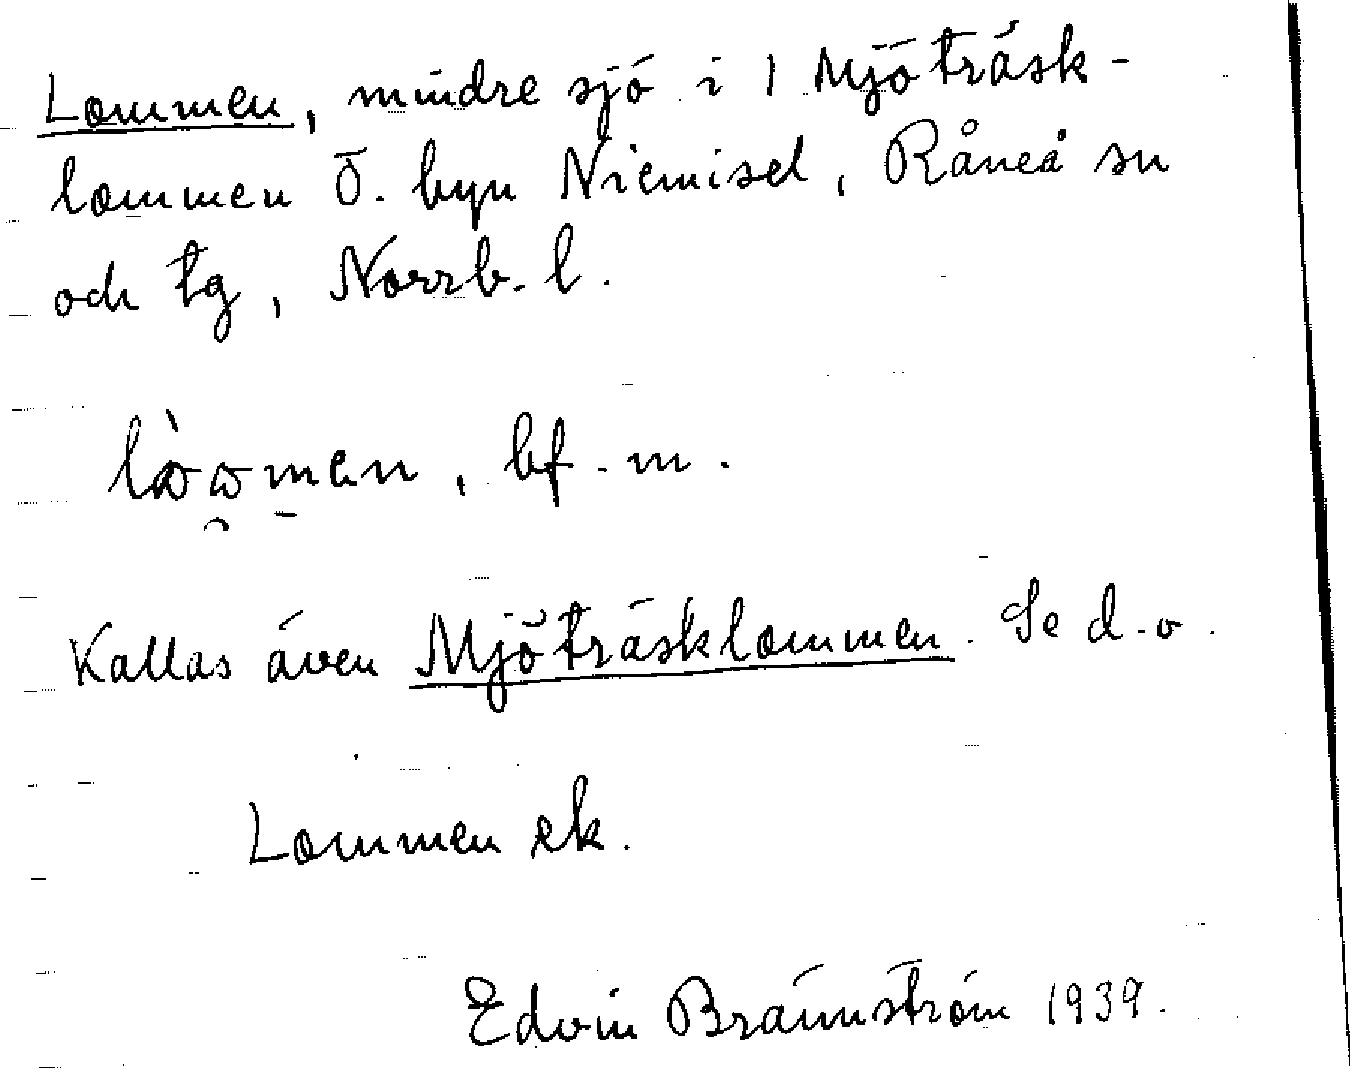 Lommen, mindre sjö i 1 Mjöträsk-
lommen Ö. byn Niemisel, Råneå sn
och tg, Norrb. l.
bf. m.
Kallas även Mjöträsklommen. Se d. o.
Lommen ek.
Edvin Brännström 1939.